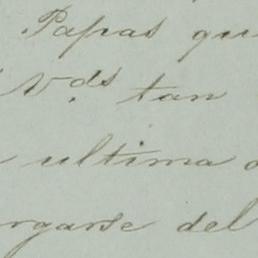 Papas qu
V.ds tan
ultima
rgarse del